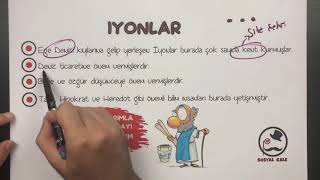 IYONLAR
Şite Şehri
Ege Denizi kıyılarına gelip yerleşen İyonlar burada çok sayıda Kent Kurmuşlar.
Deniz ticaretine önem vermişlerdir.
ve özgür düşünceye önem vermişlerdir.
Hipokrat ve Heredot gibi önemli bilim insanları burada yetişmiştir.
SOSYAL KALE